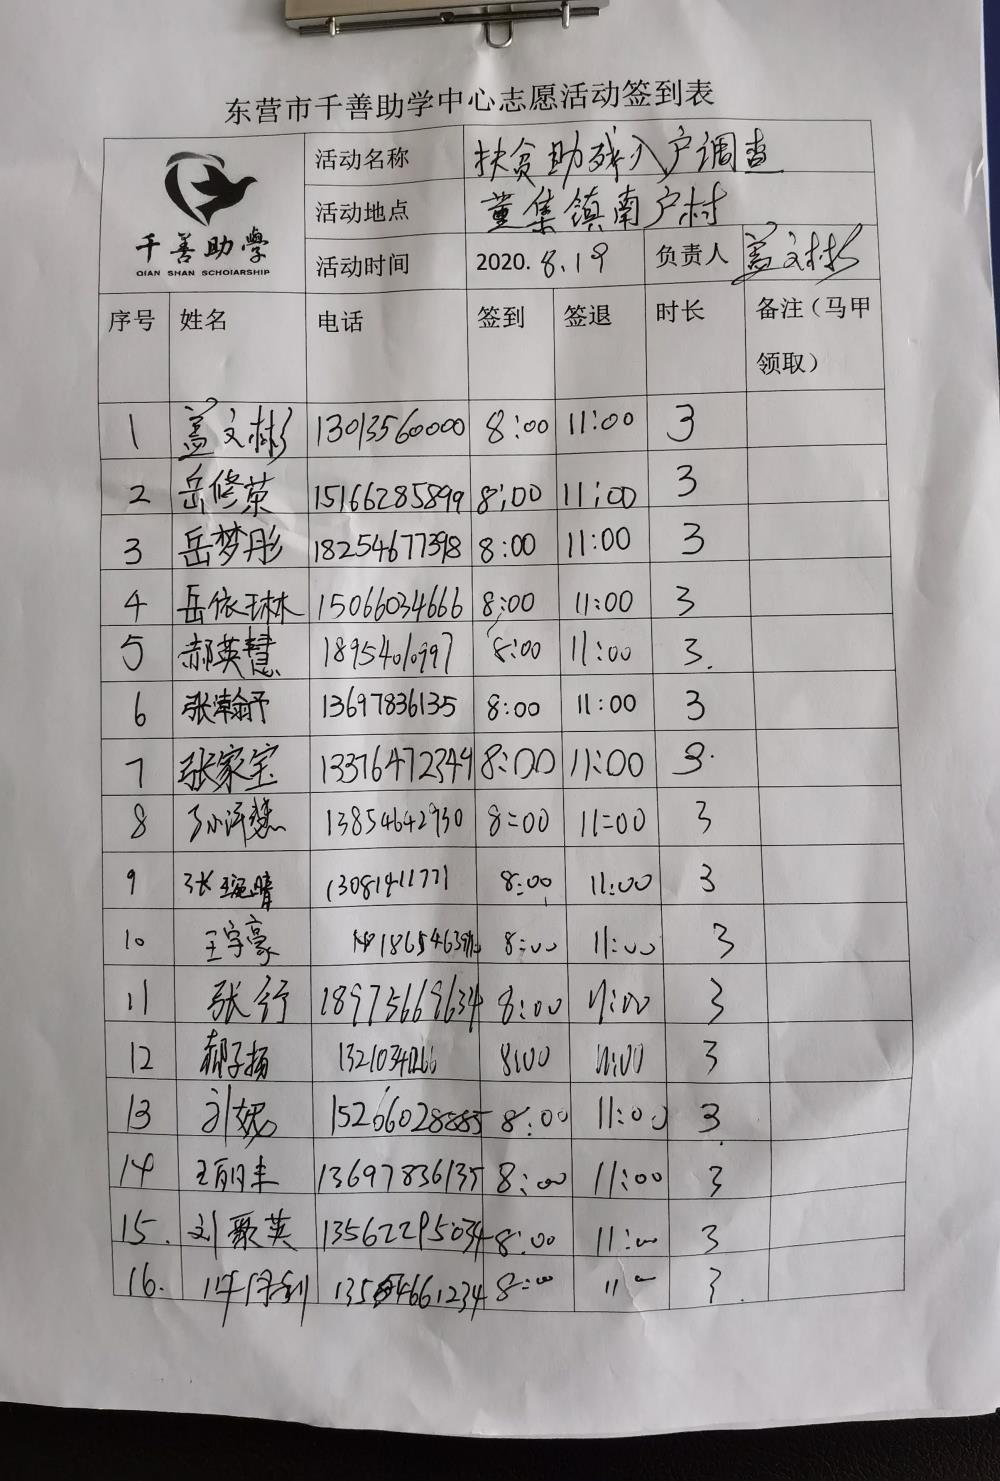 东营市千善助学中心志愿活动签到表
千善助学
QIAN SHAN SCHOIARSHIP
活动名称 扶贫助残入户调查
活动地点 董集镇南户村
活动时间 2020.8.19 负责人 盖文彬
序号 姓名 电话 签到 签退 时长 备注（马甲领取）
1 盖文彬 13013560000 8:00 11:00 3
2 岳修荣 15166285899 8:00 11:00 3
3 岳梦彤 18254677398 8:00 11:00 3
4 岳依琳 15066034666 8:00 11:00 3
5 郝英慧 18954010997 8:00 11:00 3.
6 张瀚予 13697836135 8:00 11:00 3
7 张家宝 13376472349 8:00 11:00 3
8 13854642930 8:00 11:00 3
9 张琬晴 13081411771 8:00 11:00 3
10 王宇豪 8:00 11:00 3
11 张行 18975669634 8:00 11:00 3
12 郝子扬 8:00 11:00 3
13 刘媤 15266028885 8:00 11:00 3
14 王丽圭 13697836135 8:00 11:00 3
15. 刘聚英 13562295034 8:00 11:00 3
16. 8:00 11 3